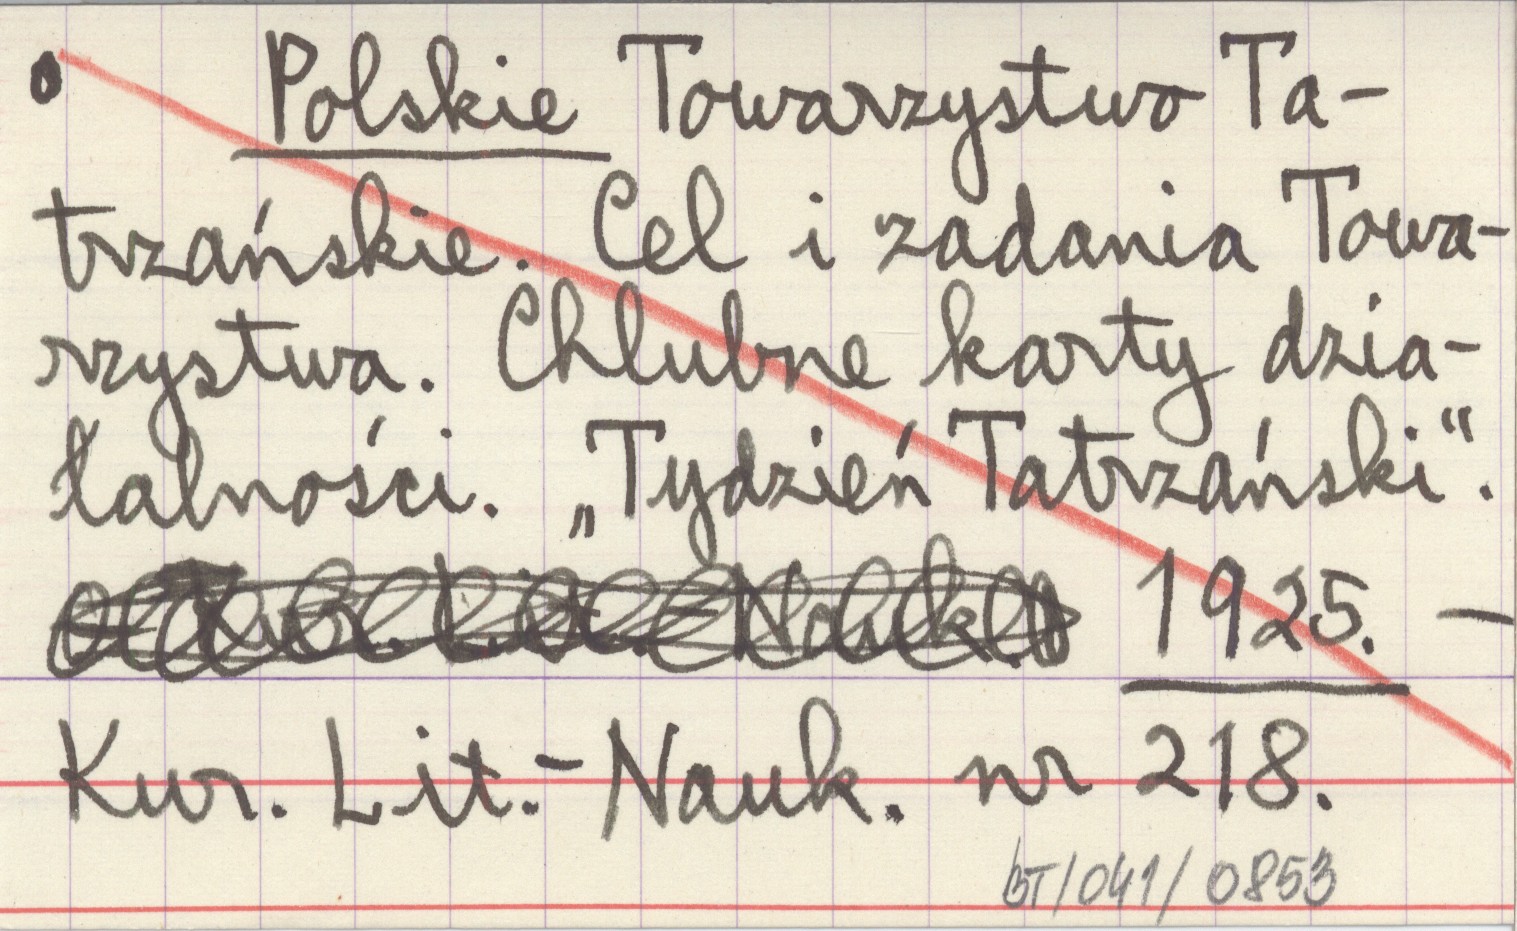 Polskie Towarzystwo Ta-
trzańskie. Cel i zadania Towa-
rzystwa. Chlubne karty dzia-
łalności. „Tydzień Tatrzański“.
1925. —
Kur. Lit.-Nauk. nr 218.
BT/041/0853